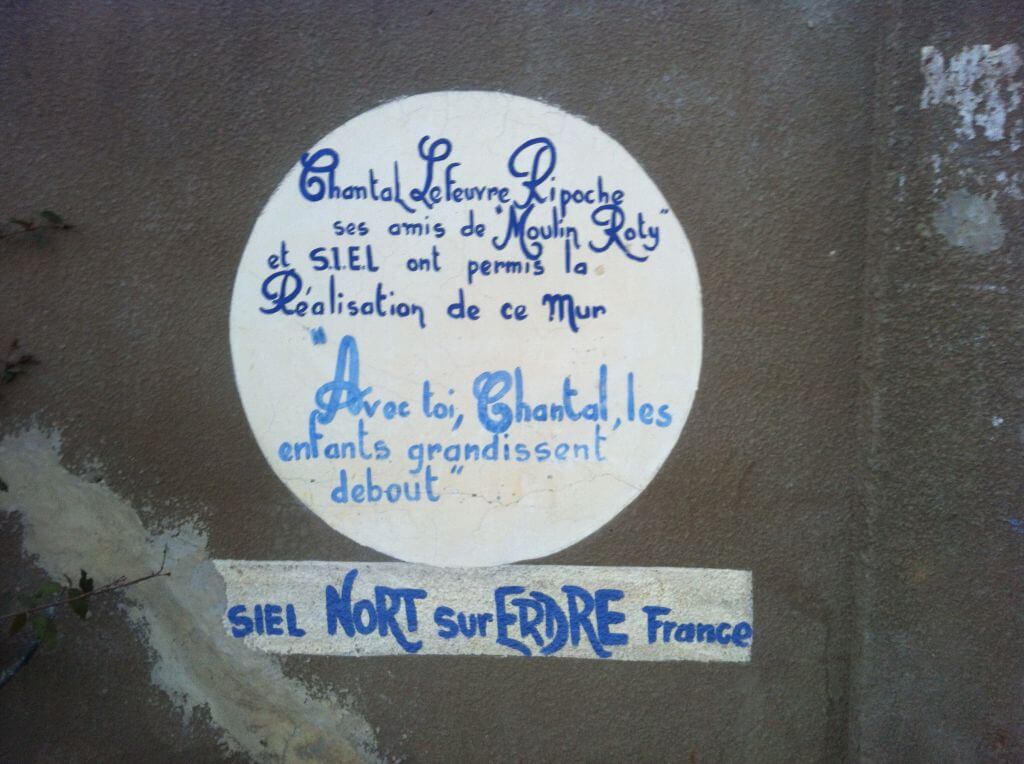 Chantal Lefeuvre Ripoche
ses amis de "Moulin Roty"
et S.I.E.L ont permis la
Réalisation de ce Mur
"Avec toi, Chantal, les
enfants grandissent
debout"
SIEL NORT sur ERDRE France